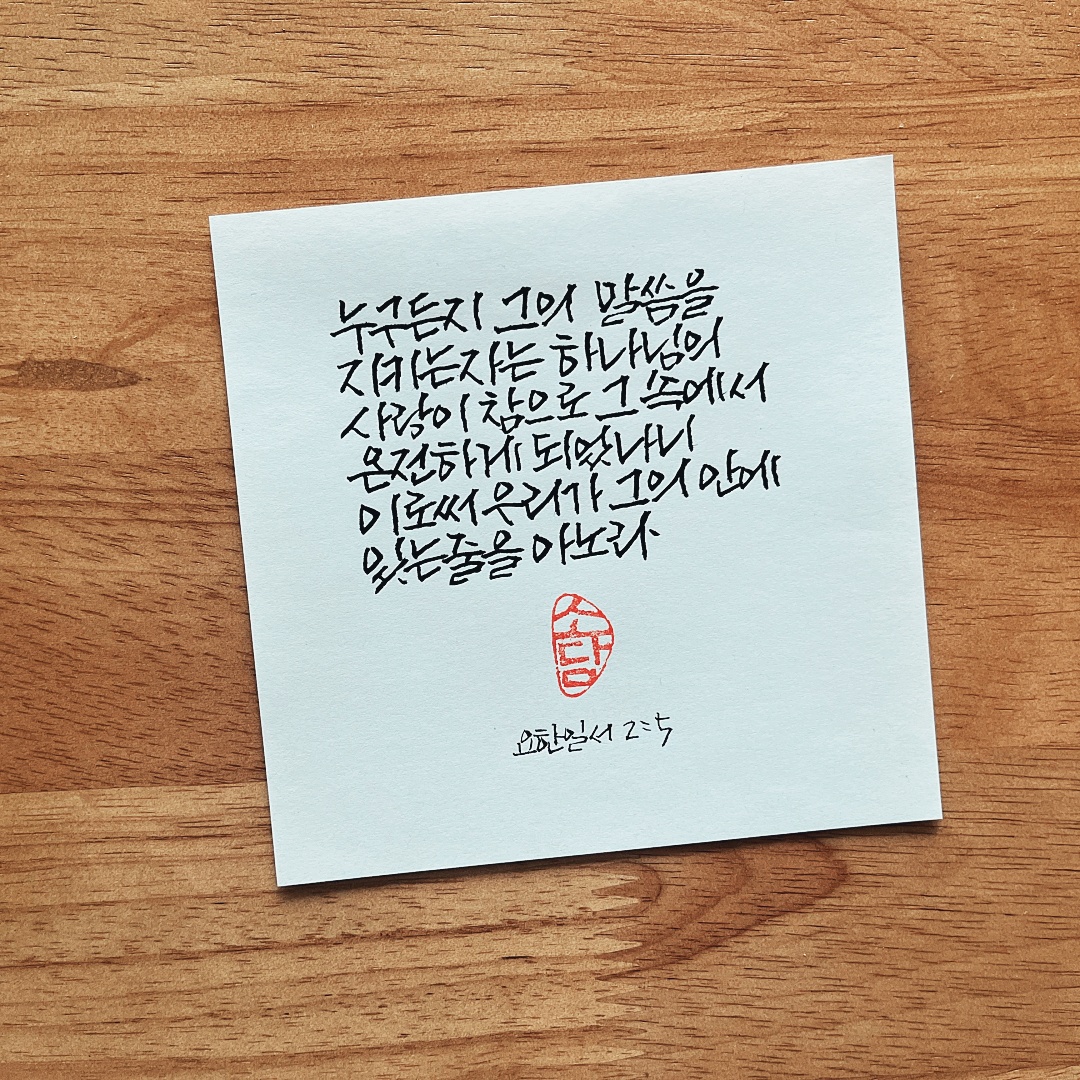 누구든지 그의 말씀을
지키는자는 하나님의
사랑이 참으로 그 속에서
온전하게 되었나니
이로써 우리가 그의 안에
있는줄을 아노라
소담
요한일서 2:5